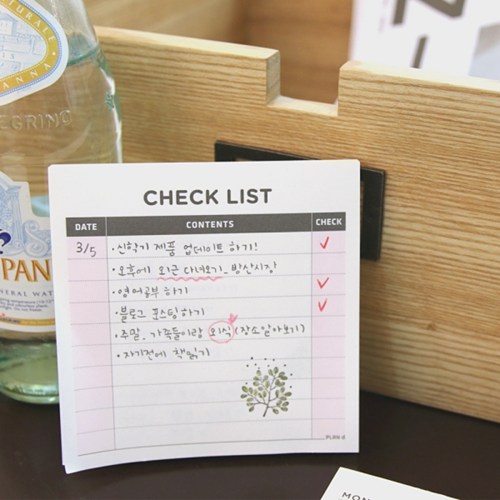 TURALE
ANNA
EGRINO
PAN
NERAL WAT
CHECK LIST
DATE CONTENTS CHECK
3/5 ·신학기 제품 업데이트 하기! ✓
·오후에 외근 다녀오기. 방산시장
·영어공부 하기 ✓
·블로그 포스팅하기 ✓
·주말. 가족들이랑 외식 (장소알아보기)
·자기전에 책읽기
PLAN d
MON